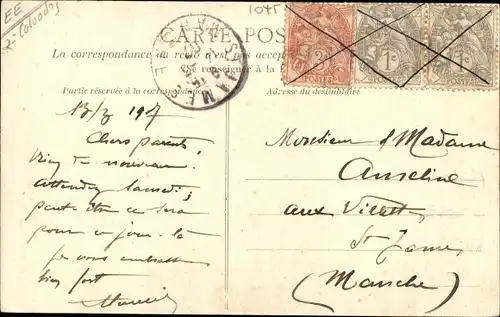 EE
1045
CARTE POS
La correspondance au recto n'est pas accep
Se renseigner à la
Partie réservée à la correspondance
Adresse du destinataire
3
POSTES
1c
POSTES
1c
POSTES
JAMES
13/3 1907
Chers parents,
Rien de nouveau.
attendez Samedi,
peut être ce sera
pour ce jour-là
je vous embrasse
bien fort
Monsieur & Madame
Anseline
aux
St James
(Manche)